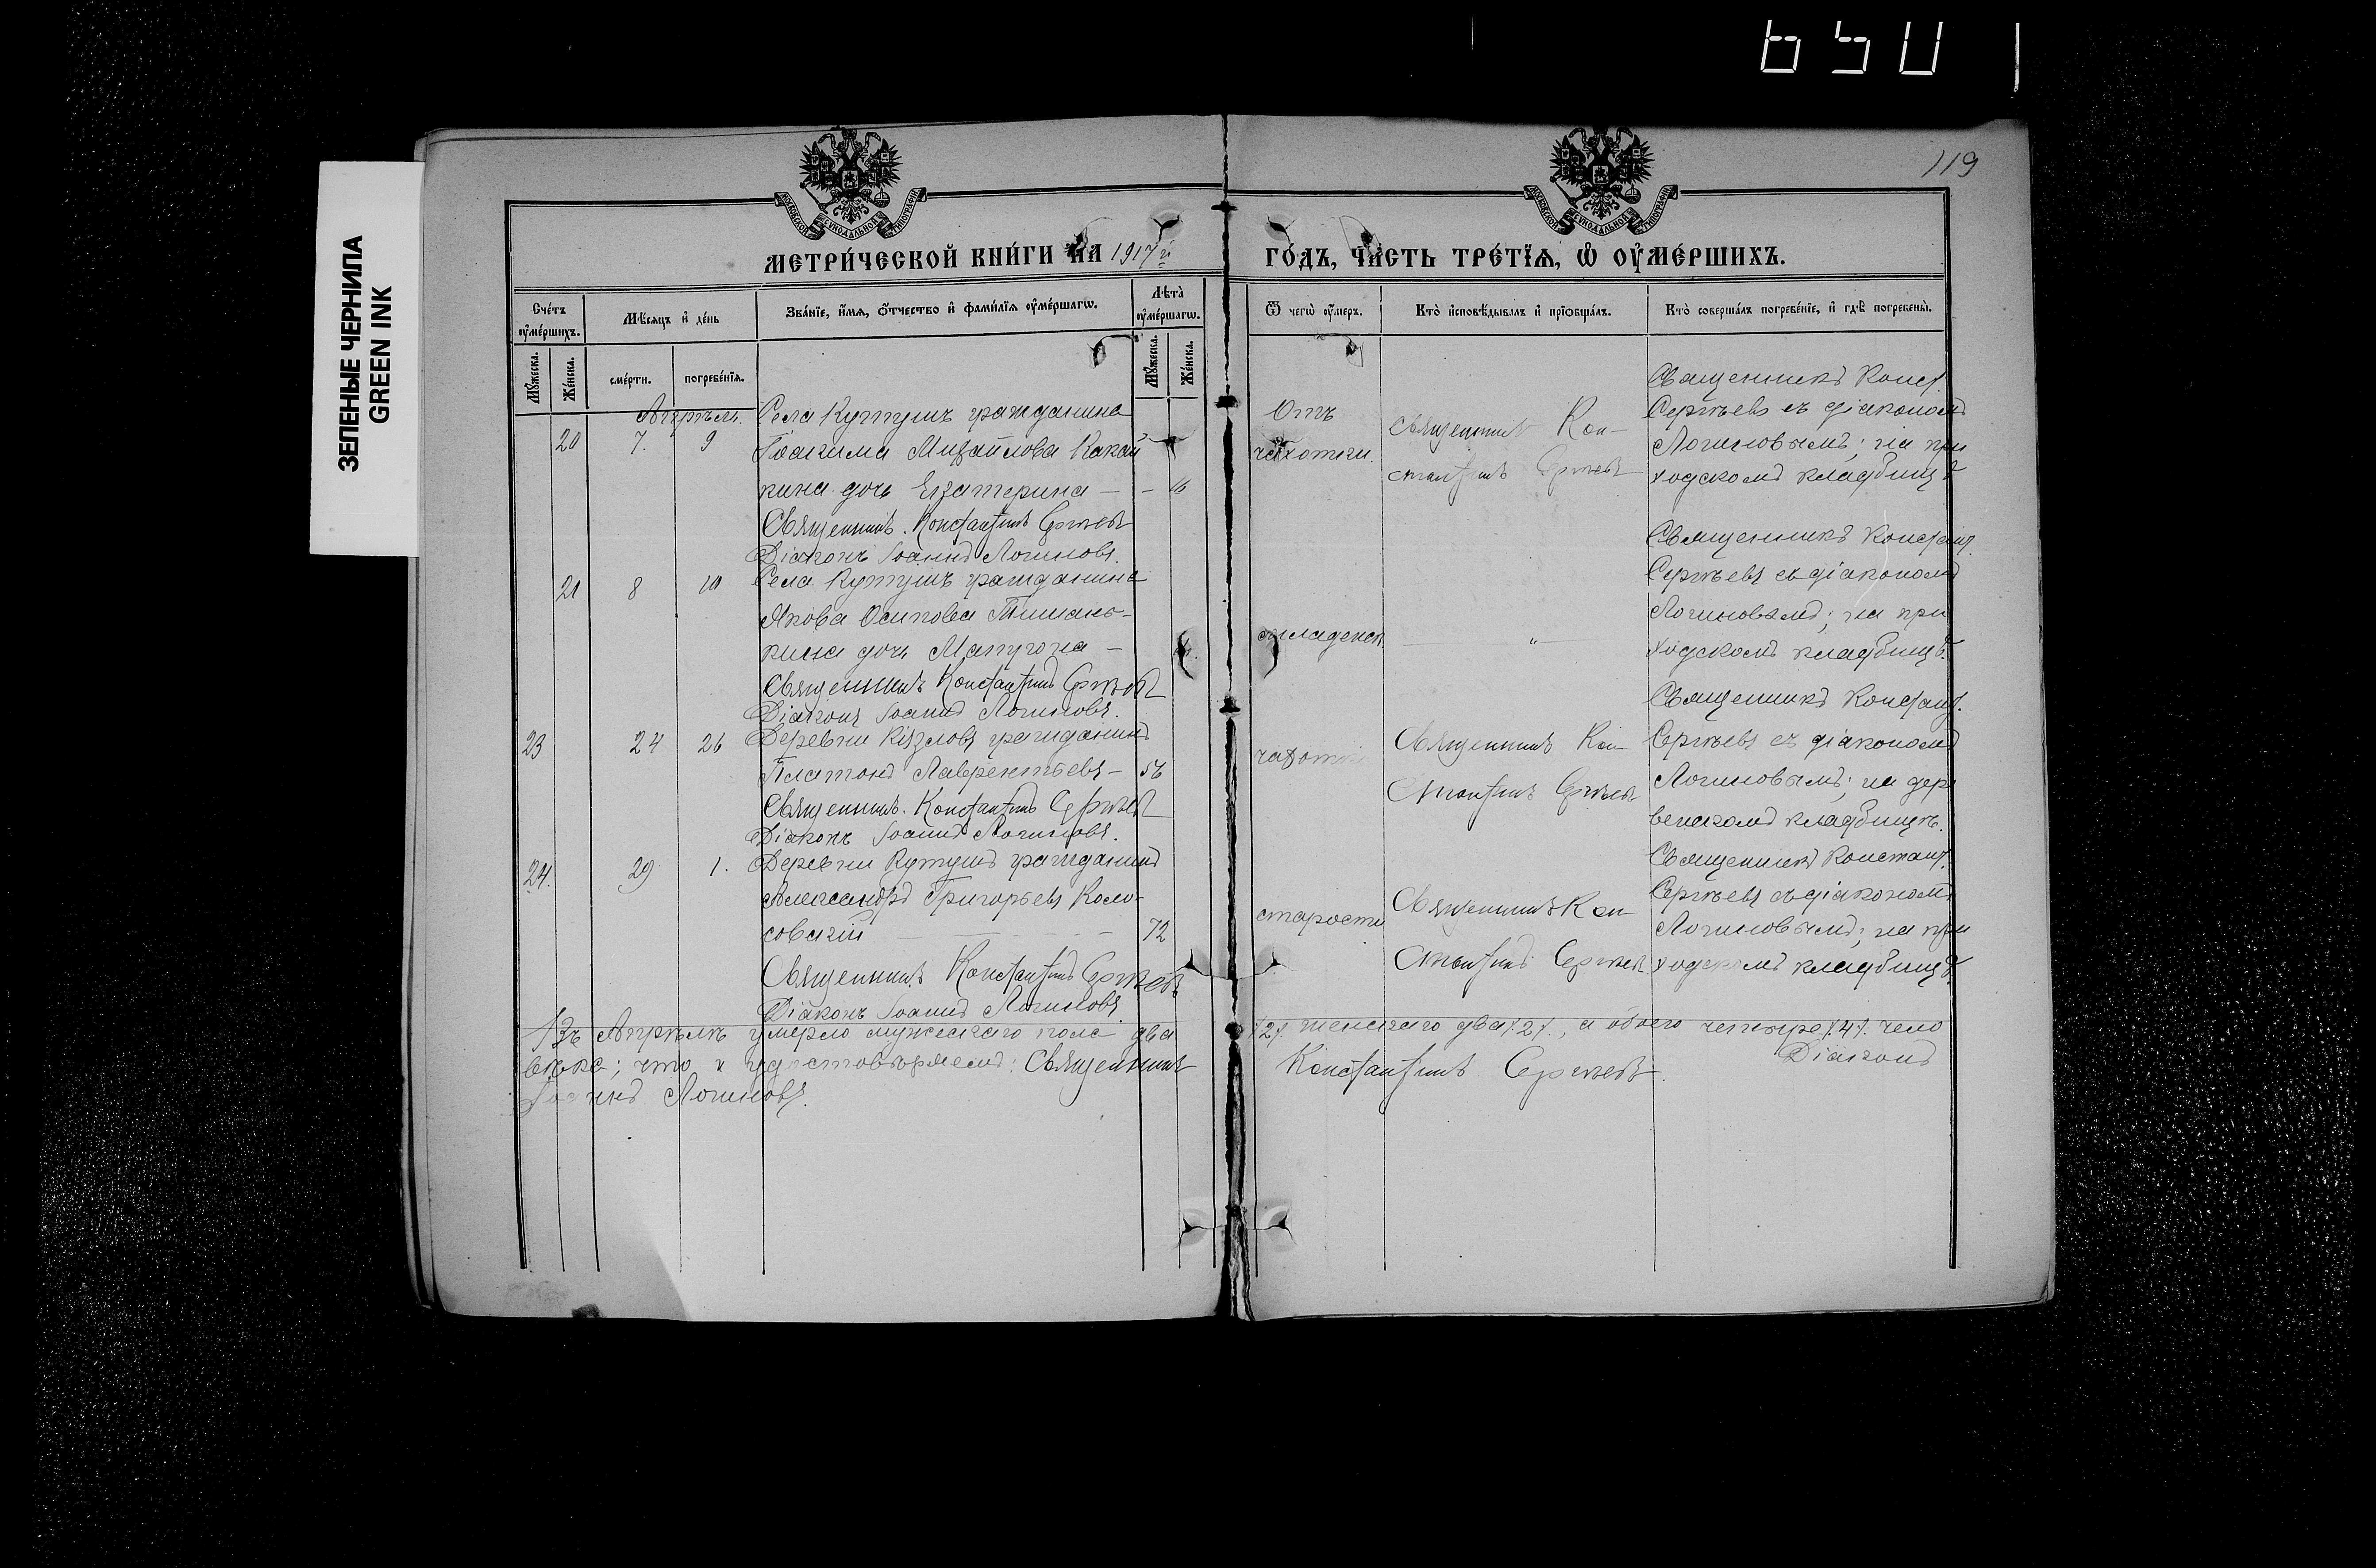 6501
119
ЗЕЛЕНЫЕ ЧЕРНИЛА
GREEN INK
МОСКОВСКОЙ СѴНОДАЛЬНОЙ ТИПОГРАФІИ
МОСКОВСКОЙ СѴНОДАЛЬНОЙ ТИПОГРАФІИ
МЕТРИ́ЧЕСКОЙ КНИ́ГИ НА 1917 й
ГО́ДЪ, ЧА́СТЬ ТРЕ́ТЇѦ, Ѡ҆ ОУ҆МЕ́РШИХЪ.
Сче́тъ оу҆ме́ршихъ.
Мѣ́сѧцъ и҆ де́нь
Зва́нїе, и҆́мѧ, ѻ҆́тчество и҆ фами́лїѧ оу҆ме́ршагѡ.
Лѣта̀ оу҆ме́ршагѡ.
Ѿ чегѡ̀ оу҆́меръ.
Кто̀ и҆сповѣ́дывалъ и҆ прїѡбща́лъ.
Кто̀ соверша́лъ погребе́нїе, и҆ гдѣ̀ погребены̀.
Мꙋ́жеска.
Же́нска.
сме́рти.
погребе́нїѧ.
Мꙋ́жеска.
Же́нска.
Апрѣль.
20 7. 9
Села Кутушъ гражданина
Іоакима Михайлова
кина дочь Екатерина — – 16
Священникъ Константинъ Сергѣевъ
Діаконъ Іоаннъ Логиновъ.
Отъ
чахотки.
Священникъ Кон-
стантинъ Сергѣевъ
Священникъ Конст.
Сергѣевъ съ діакономъ
Логиновымъ; на при
ходскомъ кладбищѣ
21 8 10
Села Кутушъ гражданина
Якова Осипова
кина дочь —
Священникъ Константинъ Сергѣевъ
Діаконъ Іоаннъ Логиновъ.
младенч.
— „ —
Священникъ Констант.
Сергѣевъ съ діакономъ
Логиновымъ; на при
ходскомъ кладбищѣ.
23 24 26
Деревни гражданинъ
Платонъ Лаврентьевъ – 56
Священникъ Константинъ Сергѣевъ
Діаконъ Іоаннъ Логиновъ.
чахотки
Священникъ Кон-
стантинъ Сергѣевъ
Священникъ Констант.
Сергѣевъ съ діакономъ
Логиновымъ; на дере
венскомъ кладбищѣ.
24. 29 1.
Деревни Кутушъ гражданинъ
Александръ Григорьевъ Коло-
совскій — 72
Священникъ Константинъ Сергѣевъ
Діаконъ Іоаннъ Логиновъ.
старости
Священникъ Кон-
стантинъ Сергѣевъ
Священникъ Констант.
Сергѣевъ съ діакономъ
Логиновымъ; на при
ходскомъ кладбищѣ.
Въ Апрѣлѣ умерло мужескаго пола два /2/. женскаго два /2/., а обоего четыре /4/. чело
вѣка; что и удостовѣряемъ: Священникъ Константинъ Сергѣевъ. Діаконъ
Іоаннъ Логиновъ.